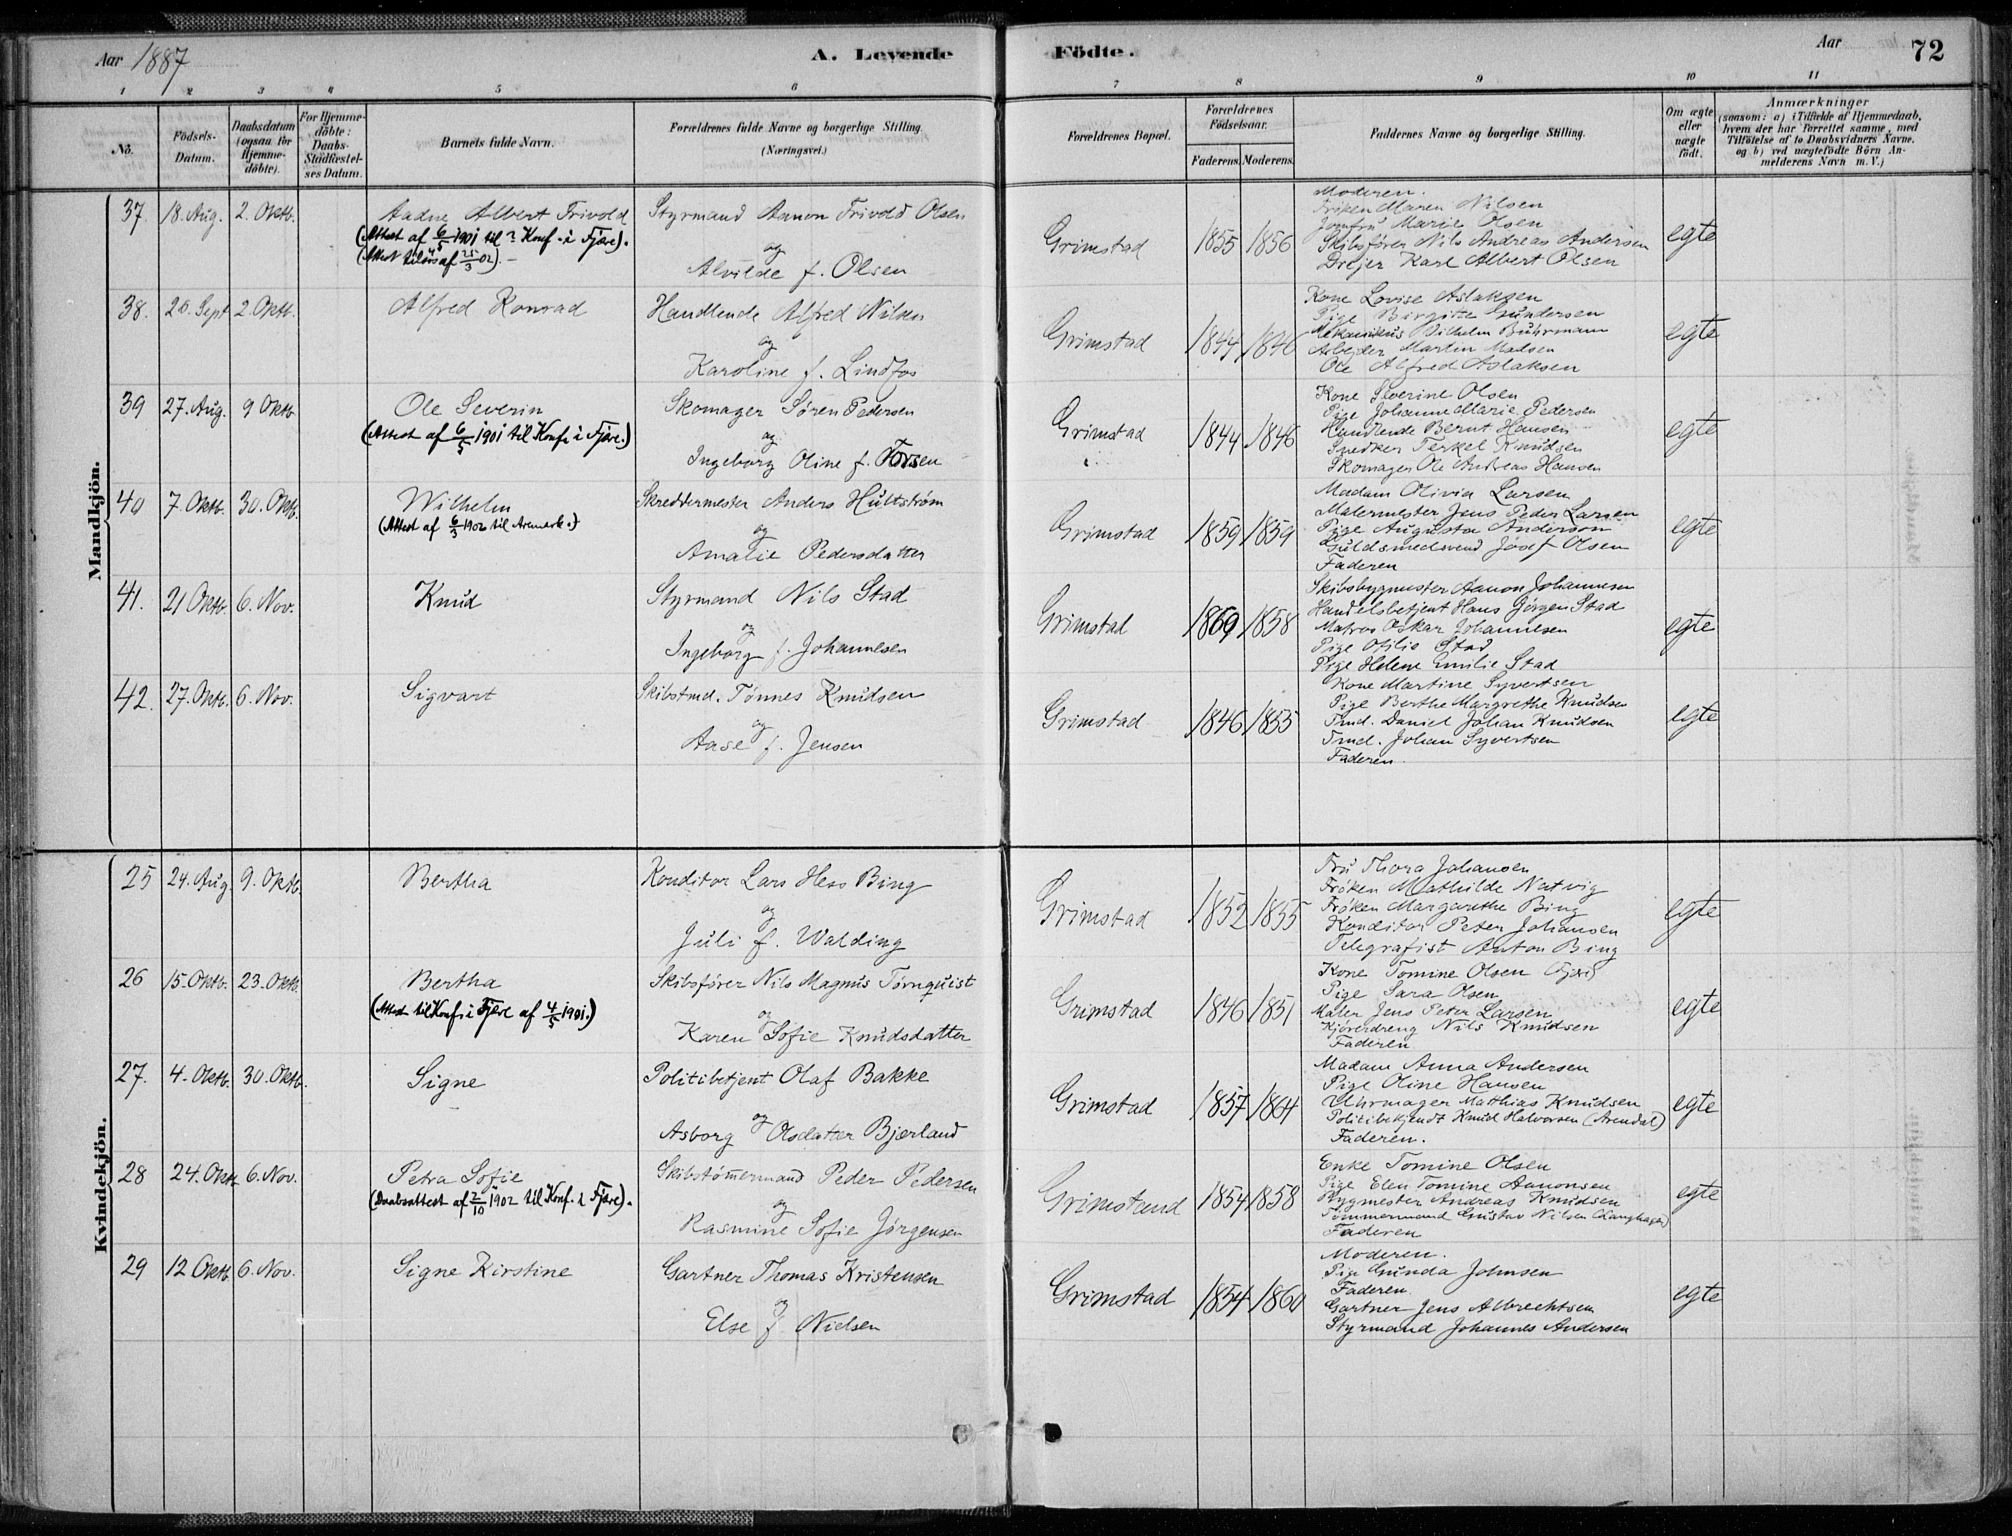 Aar 1887
A. Levende
Födte.
Aar
72
1 2 3 4 5 6 7 8 9 10 11
No.
Födsels-Datum.
Daabsdatum (ogsaa for Hjemme-döbte).
For Hjemme-döbte: Daabs-Stadfæstel-ses Datum.
Barnets fulde Navn.
Forældrenes fulde Navne og borgerlige Stilling. (Næringsvei.)
Forældrenes Bopæl.
Forældrenes Födselsaar.
Faderens. Moderens.
Faddernes Navne og borgerlige Stilling.
Om ægte eller uægte födt.
Anmærkninger
(saasom: a) i Tilfælde af Hjemmedaab, hvem der har forrettet samme, med Tilföielse af to Daabsvidners Navne, og b) ved uægtefödte Börn Anmelderens Navn m. V.)
Mandkjön.
37. 18. Aug. 2. Oktb. Aadne Albert Trivold
(Attest af 6/5 1901 til Konf. i Fjære).
Styrmand Aanon Trivold Olsen
og
Alvilde f. Olsen
Grimstad 1855 1856
Moderen.
Frøken Maren Nilsen
Jomfru Marie Olsen
Skibsfører Nils Andreas Andersen
Drejer Karl Albert Olsen
egte
38. 20. Sept 2. Oktb. Alfred Konrad
Handlende Alfred Nilsen
og
Karoline f. Lindfos
Grimstad 1844 1846
Kone Lovise Aslaksen
Pige Birgitte Gundersen
Mekanikus Vilhelm Buhrmann
Arbeider Martin Madsen
Ole Alfred Aslaksen
egte
39 27. Aug. 9 Oktb. Ole Severin
(Attest af 6/5 1901 til Konf. i Fjære.)
Skomager Søren Pedersen
og
Ingeborg Oline f. Torsen
Grimstad 1844 1846
Kone Severine Olsen
Pige Johanne Marie Pedersen
Handlende Bernt Hansen
Snedker Terkel Knudsen
Skomager Ole Andreas Hansen
egte
40 7. Oktb. 30. Oktb. Wilhelm
(Attest af 6/5 1902 til Aremark.)
Skreddermester Anders Hultstrøm
og
Amalie Pedersdatter
Grimstad 1859 1859
Madam Olivia Larsen
Malermester Jens Peder Larsen
Pige Augusta Anderson
Guldsmedsvend Josef Olsen
Faderen
egte
41. 21 Oktb. 6. Nov. Knud
Styrmand Nils Stad
og
Ingeborg f. Johannesen
Grimstad 1860 1858
Skibsbygmester Aanon Johannesen
Handelsbetjent Hans Jørgen Stad
Matros Oskar Johannesen
Pige Otilie Stad
Pige Helene Emilie Stad
egte
42. 27. Oktb. 6. Nov. Sigvart
Skibstmd. Tønnes Knudsen
og
Aase f. Jensen
Grimstad 1846 1855
Kone Martine Syvertsen
Pige Berthe Margrethe Knudsen
Tmd. Daniel Johan Knudsen
Tmd. Johan Syvertsen
Faderen.
egte
Kvindekjön.
25 24. Aug. 9. Oktb. Bertha
Konditor Lars Hess Bing
og
Juli f. Walding
Grimstad 1852 1855
Fru Thora Johansen
Frøken Mathilde Natvig
Frøken Margarethe Bing
Konditor Peter Johansen
Telegrafist Anton Bing
egte
26 15. Oktb. 23. Oktb. Bertha
(Attest til Konf. i Fjære af 4/5 1901.)
Skibsfører Nils Magnus Tørnquist
og
Karen Sofie Knudsdatter
Grimstad 1846 1851
Kone Tomine Olsen
Pige Sara Olsen
Maler Jens Peter Larsen
Kjøredreng Nils Knudsen
Faderen
egte
27. 4. Oktb. 30. Oktb. Signe
Politibetjent Olaf Bakke
og
Asborg Olsdatter Bjærland
Grimstad 1857 1864
Madam Anna Andersen
Pige Oline Hansen
Uhrmager Matthias Knudsen
Politibetjendt Knud Halvorsen (Arendal)
Faderen.
egte
28 24. Oktb. 6. Nov. Petra Sofie
(Daabsattest af 2/10 1902 til Konf. i Fjære).
Skibstømermand Peder Pedersen
og
Rasmine Sofie Jørgensen
Grimstand 1854 1858
Enke Tomine Olsen
Pige Elen Tomine Aanonsen
Bygmester Andreas Knudsen
Tømmermand Gustav Nilsen (Langhagen)
Faderen
egte
29 12 Oktb. 6. Nov. Signe Kirstine
Gartner Thomas Kristensen
og
Else f. Nielsen
Grimstad 1854 1860
Moderen.
Pige Gunda Johnsen
Faderen.
Gartner Jens Albrechtsen
Styrmand Johannes Andersen
egte